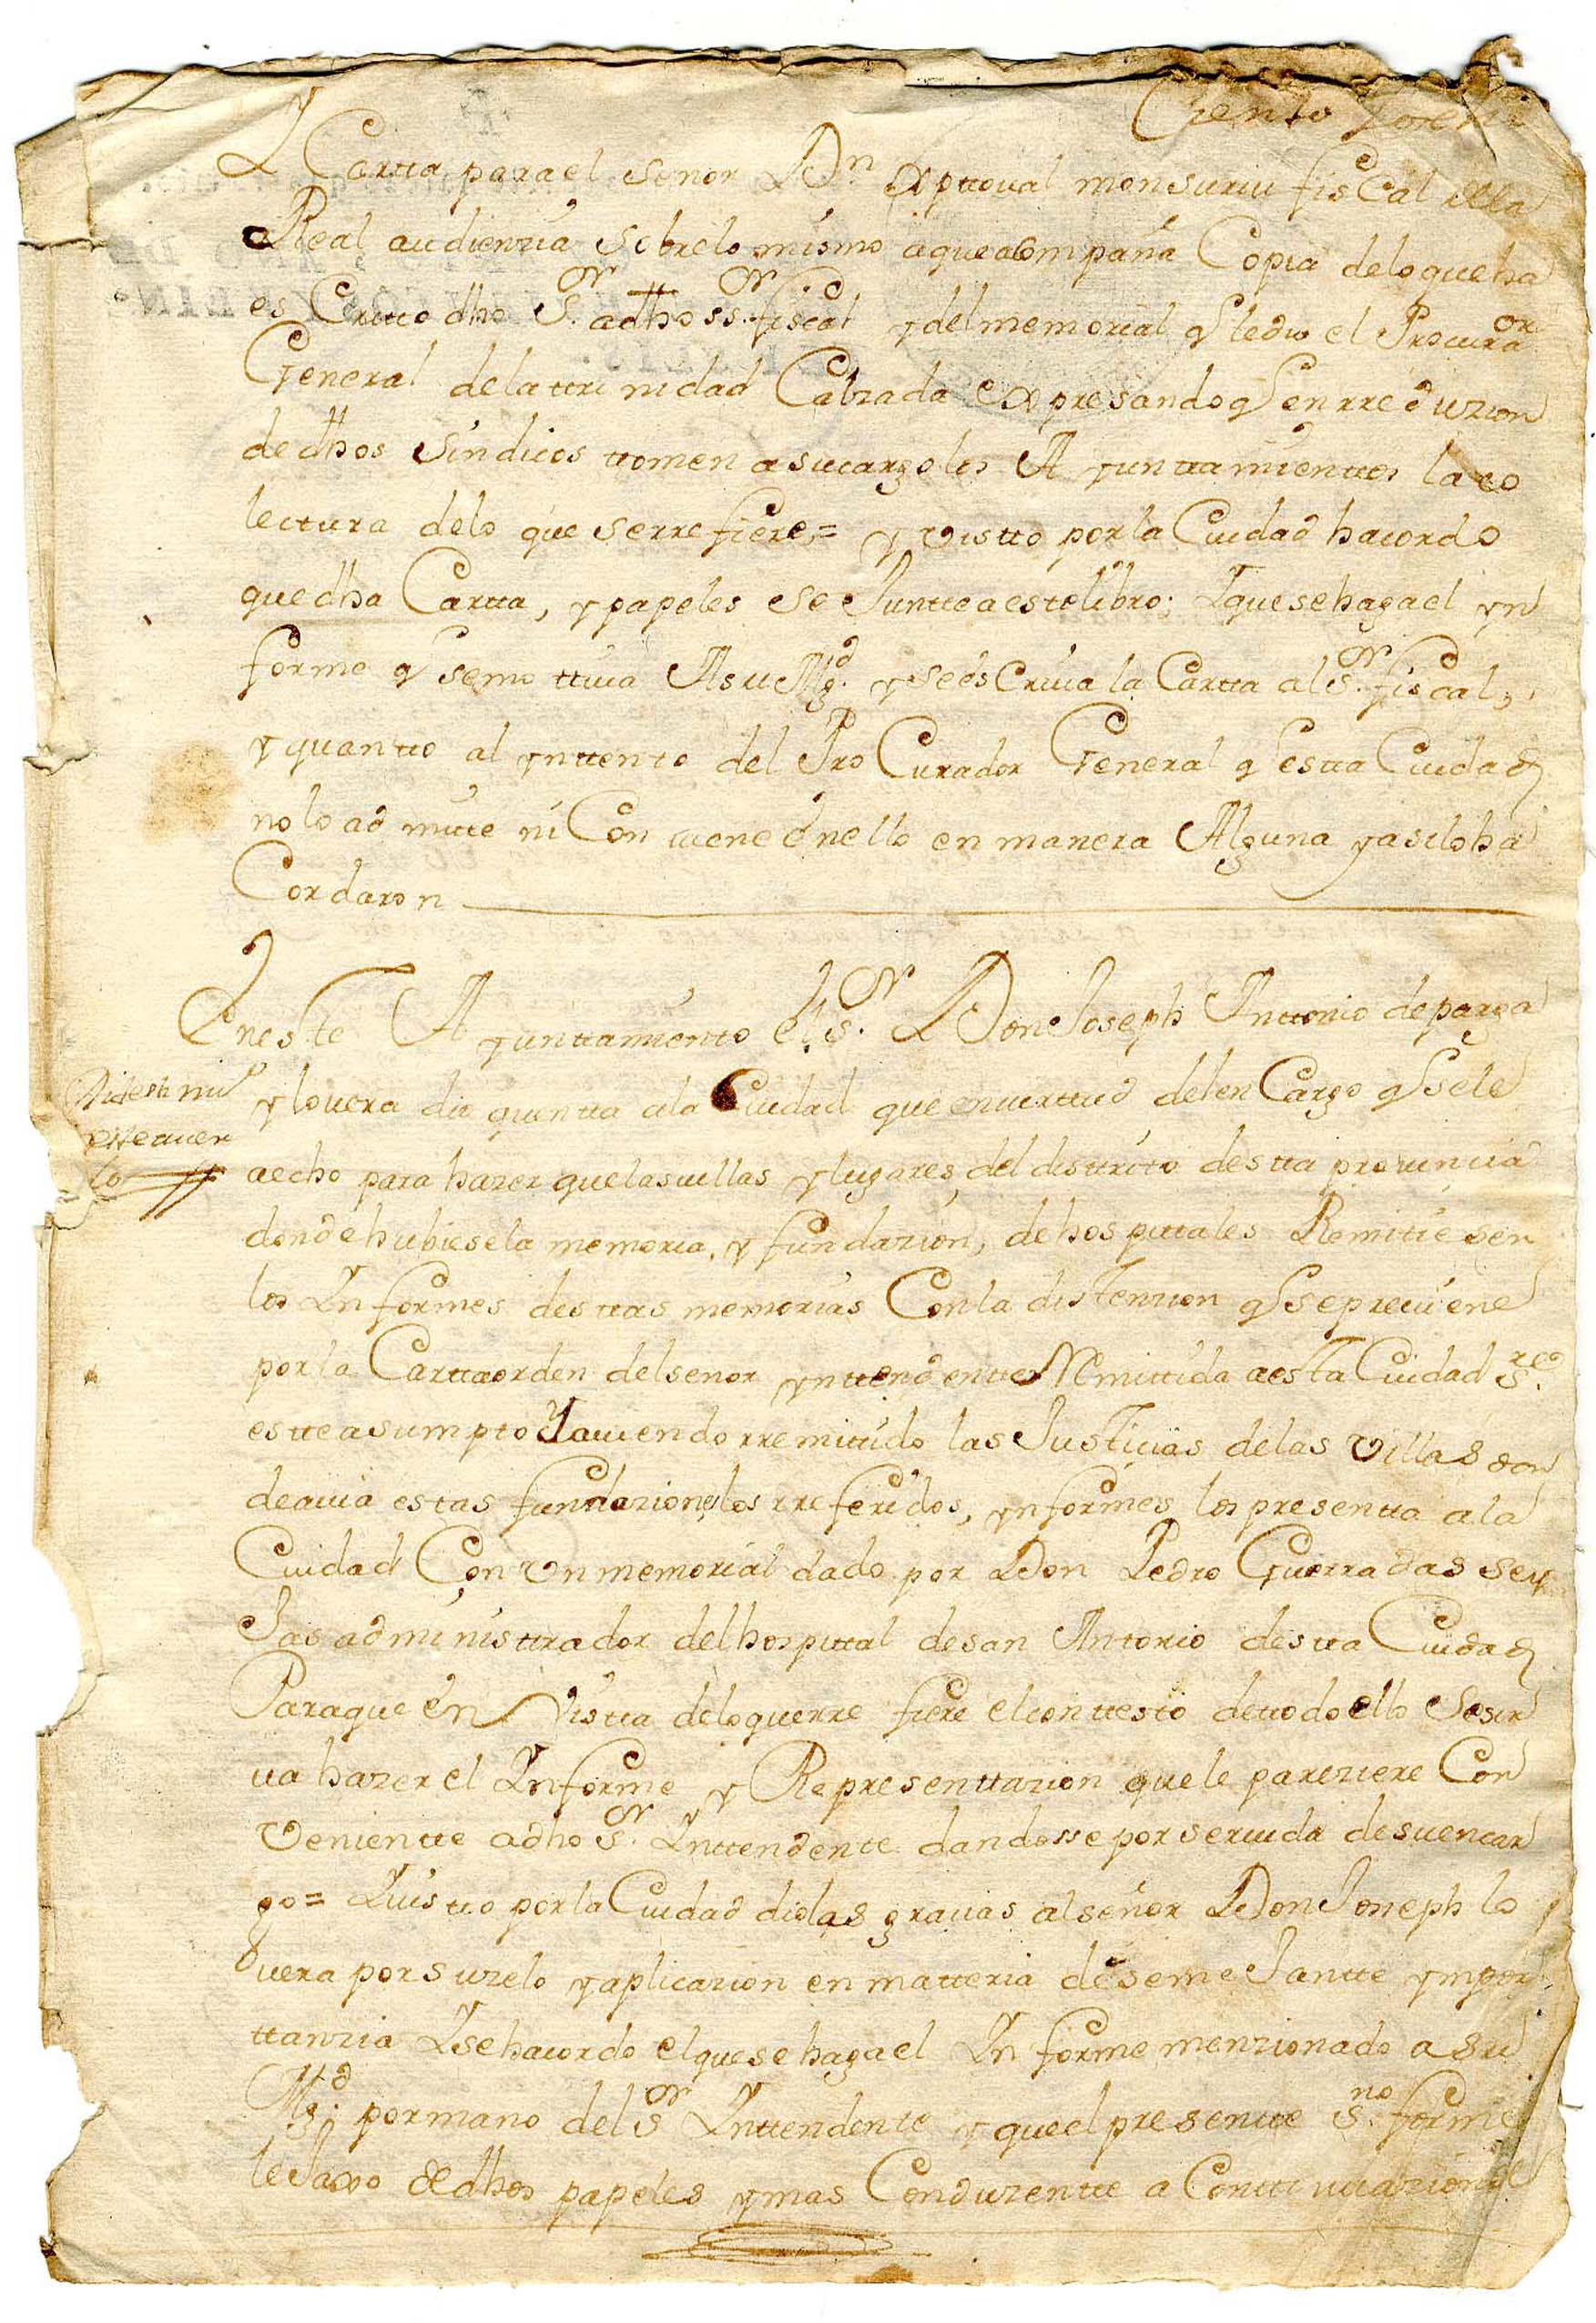 Ciento
Y Cartta para el senor Dn xpttoual monsuriu fiscal dela
Real audienzia sobrelo mismo aqueacompaña Copia deloqueha
es Critto dho Sor. adho ss.or fiscal y delmemorial q ledio el Procuraor
General dela ttrinidad Calzada expresando q en rreduzion
de dhos Sindicos ttomen asucargo los Ayunttamienttos la co
lectura delo que serrefiere,= y vistto por la Ciudad hacordo
que dha Cartta, y papeles se Juntteaestelibro; Y quesehagael yn
forme q semottiua Asu Mgd. y sees Criuia la Cartta al Sor. fiscal,
y quantto al ynttento del Pro Curador General q estta Ciudad
no lo ad mitte ni Con uiene enello en manera Alguna y asilo ha
Cordaron
Eneste Ayunttamiento el sor. Don Joseph Anttonio deparga
y louera dio quentta ala Ciudad que enuirttud delen Cargo q sele
aecho para hazer quelasuillas y lugares del disttrito destta prouincia
donde hubiesela memoria, y fundazion, de hospittales Remitiesen
los Ynformes desttas memorias Conla distenzion q sepreuiene
porla Carttaorden delsenor ynttendentte Remittida aesta Ciudad sre.
estteasumpto Yauiendo rremittido las Justicias delas villas don
deauia estas fundaziones los rreferidos, ynformes los presentta ala
Ciudad Con Vn memorial dado por Don Pedro Guerra das sey
Jas administtrador delhospittal desan Antonio destta Ciudad
Paraque en Vistta deloquerre fiere elconttesto dettodoello Sesir
ua hazer el Ynforme y Representtazion quele pareziere Con
Venientte adho Sor. Ynttendente dandosse por seruida desuencar
go= Yuistto porla Ciudad diolas gracias alseñor Don Joseph lo
uera por suzelo y aplicazion en matteria desemeJantte ympor
ttanzia Ysehacordo elquesehagael Ynforme menzionado asu
Mgd. pormano del sor Ynttendente y queel presentte sno. forme
leJaxo de dhos papeles y mas Conduzentte a Conttinuazion